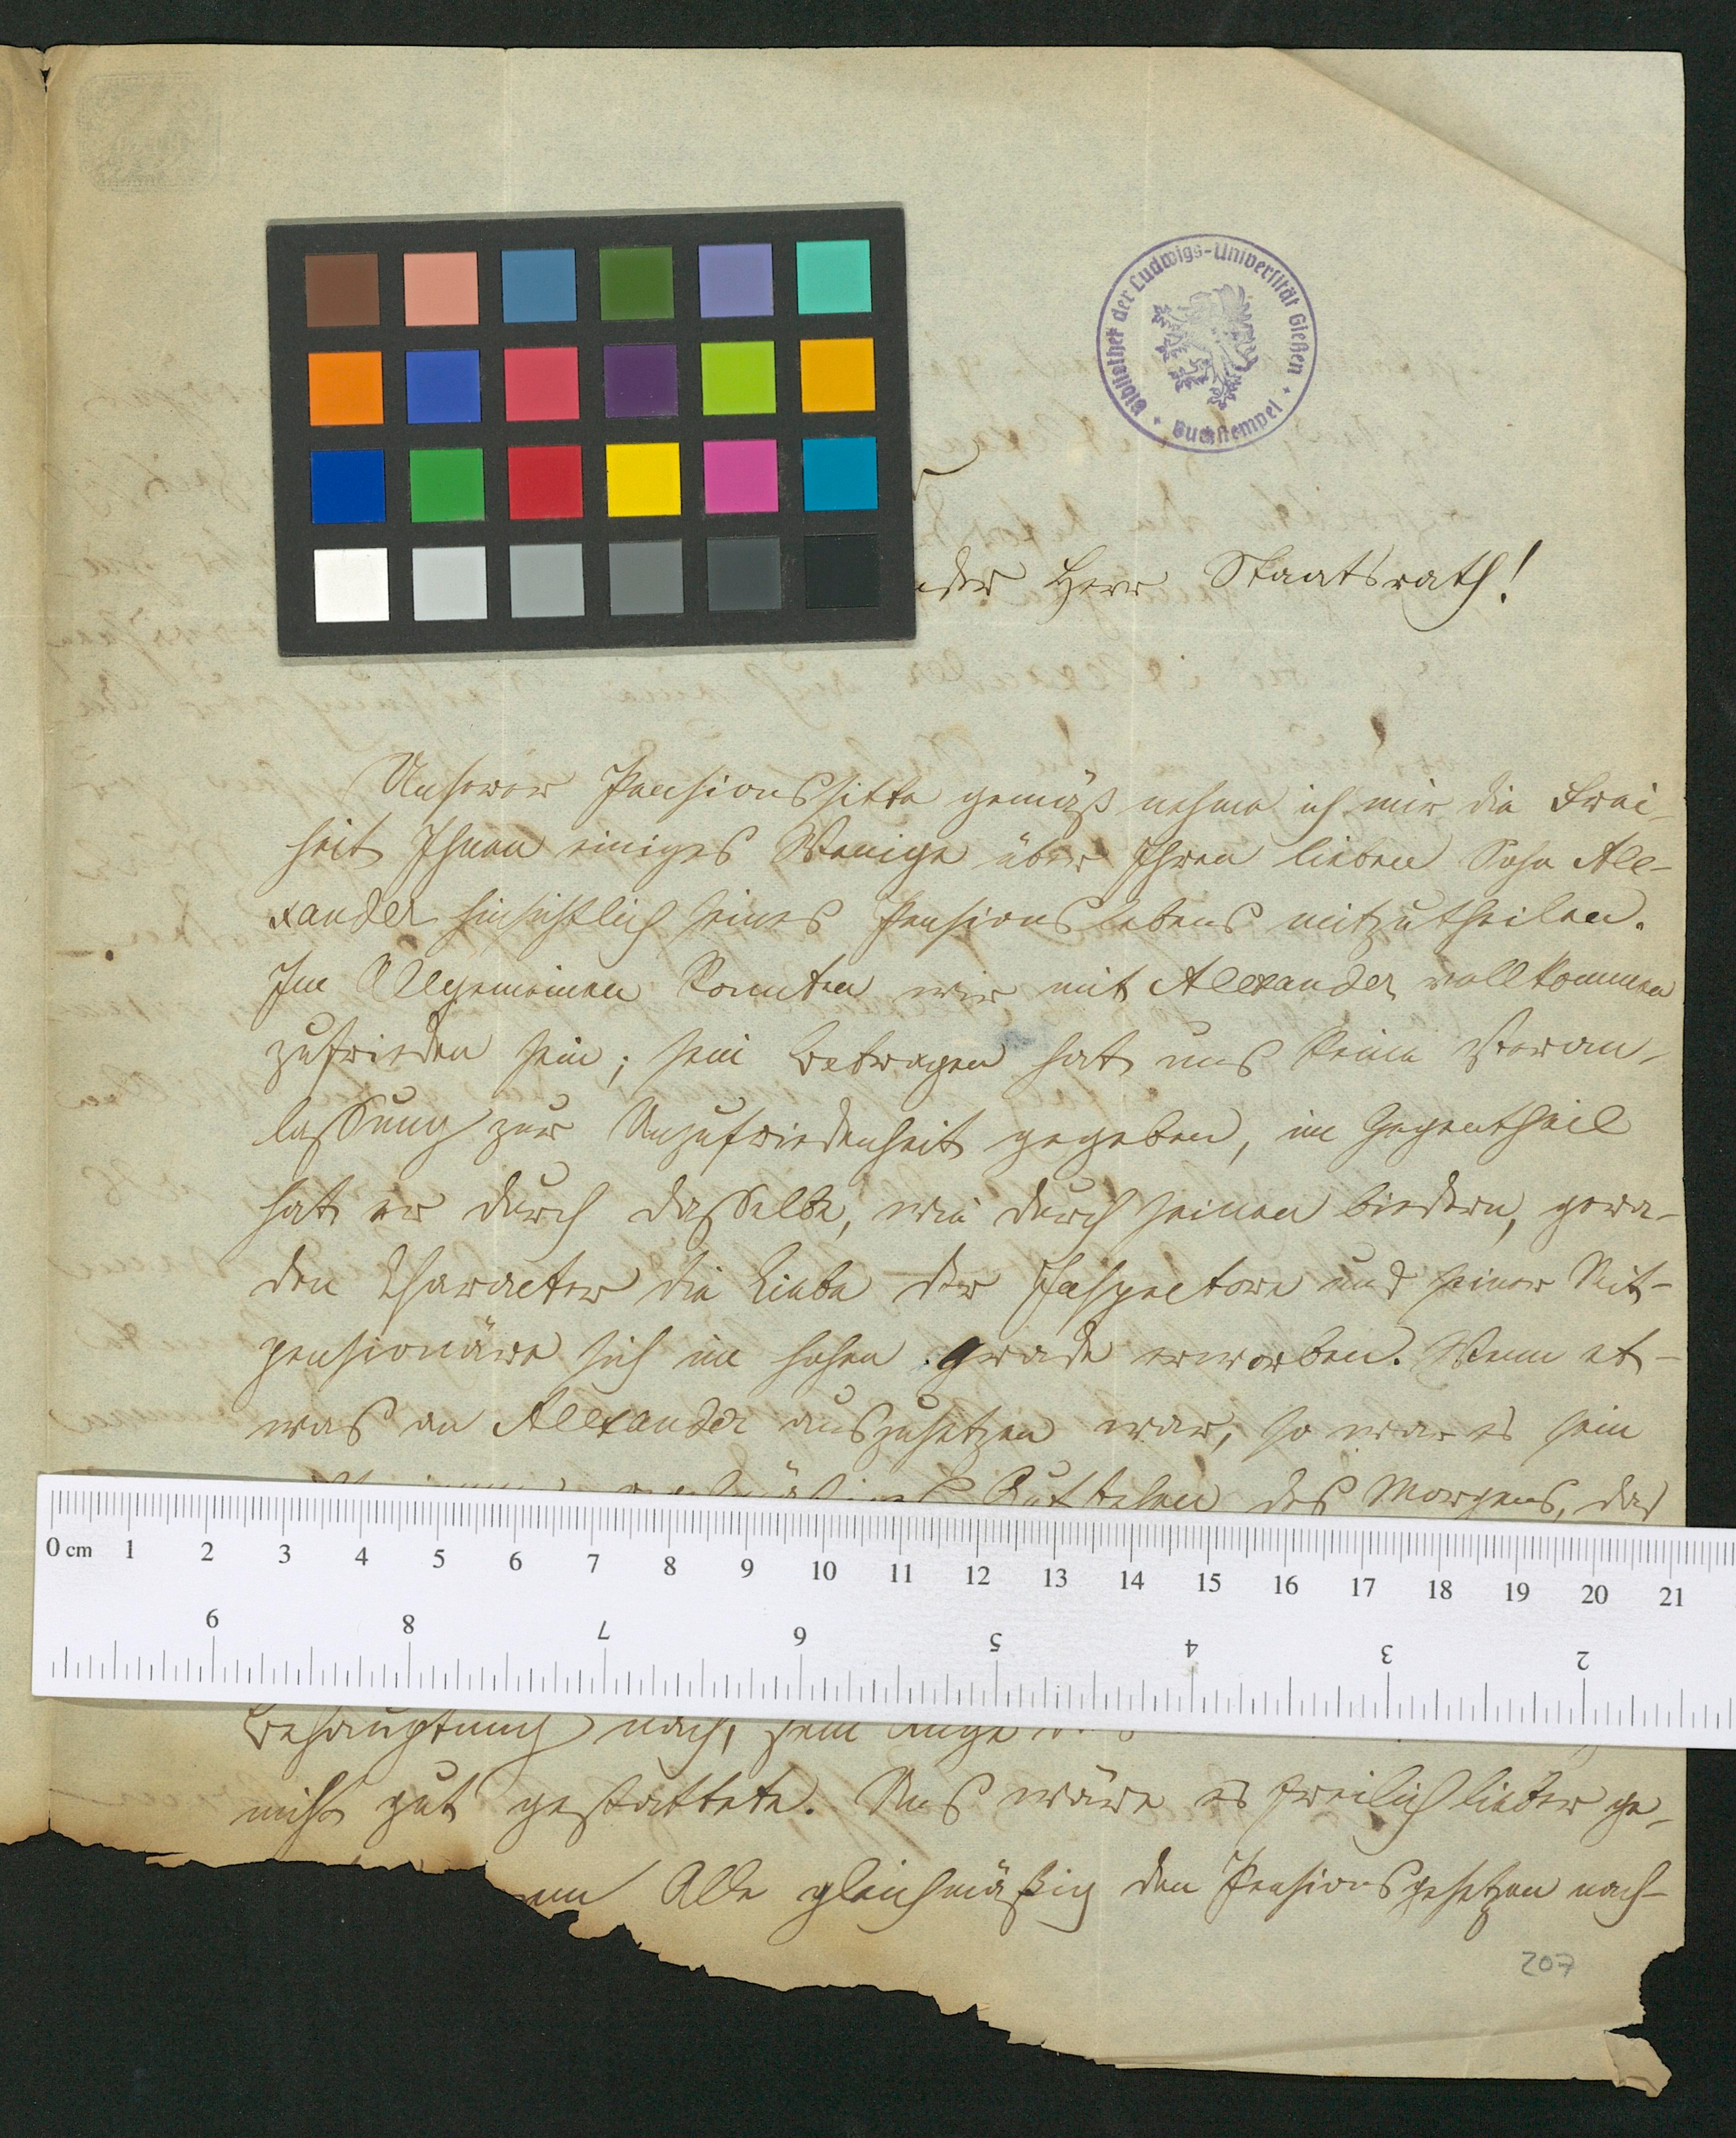 Bibliothek der Ludwigs-Universität Gießen
Buchstempel
Herr Staatsrath!
Unserer Pensionssitte gemäß nehme ich mir die Frei-
heit Ihnen einiges Wenige über Ihren lieben Sohn Ale-
xander hinsichtlich seines Pensionslebens mitzutheilen.
Im Allgemeinen konnten wir mit Alexander vollkommen
zufrieden sein; sein Betragen hat uns keine Veran-
lassung zur Unzufriedenheit gegeben, im Gegentheil
hat er durch dasselbe, wie durch seinen biedern, gera-
den Character die Liebe der Inspectore und seiner Mit-
pensionäre sich im hohen Grade erworben. Wenn et-
was an Alexander auszusetzen war, so war es sein
des Morgens, das
0 cm 1 2 3 4 5 6 7 8 9 10 11 12 13 14 15 16 17 18 19 20 21
9 8 7 6 5 4 3 2
Behauptung nach, sein Auge
nicht gut gestattete. Uns wäre es freilich lieber ge-
Alle gleichmäßig den Pensionsgesetzen nach-
207